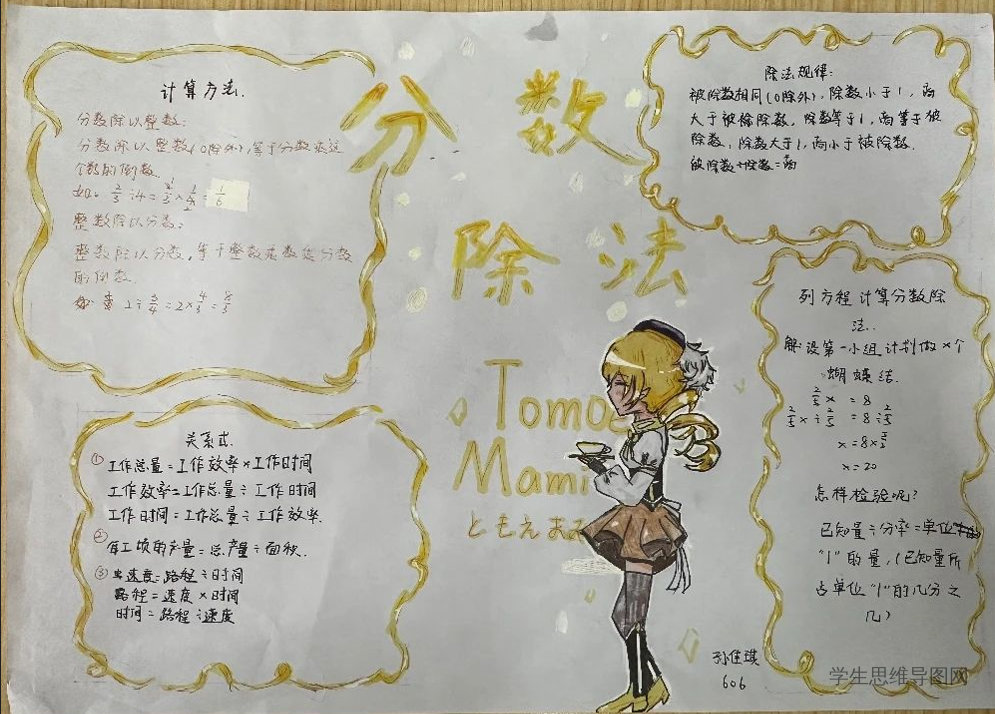 分数
除法
计算方法.
分数除以整数:
分数除以整数(0除外),等于分数乘这
个数的倒数.
如: 2/3÷4=2/3×1/4=1/6
整数除以分数:
整数除以分数,等于整数乘
的倒数
2÷3/4=2×4/3=8/3
除法规律:
被除数相同(0除外),除数小于1,商
大于被除数,除数等于1,商等于被
除数,除数大于1,商小于被除数.
被除数÷除数=商
关系式.
①工作总量=工作效率×工作时间
工作效率=工作总量÷工作时间
工作时间=工作总量÷工作效率.
②每工顷的产量=总产量÷面积.
③速度=路程÷时间
路程=速度×时间
时间=路程÷速度
Tomoe
Mami
ともえまみ
列方程计算分数除
法.
解:设第一小组计划做x个
蝴蝶结.
2/5x=8
2/5x÷2/5=8÷2/5
x=8×5/2
x=20
怎样检验呢?
已知量÷分率=单位
"1"的量,(已知量所
占单位"1"的几分之
几)
孙佳琪
606
学生思维导图网